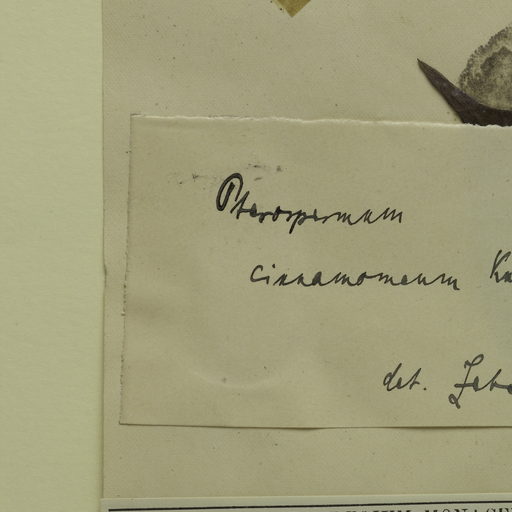 Pterospermum
cinnamomeum
det.